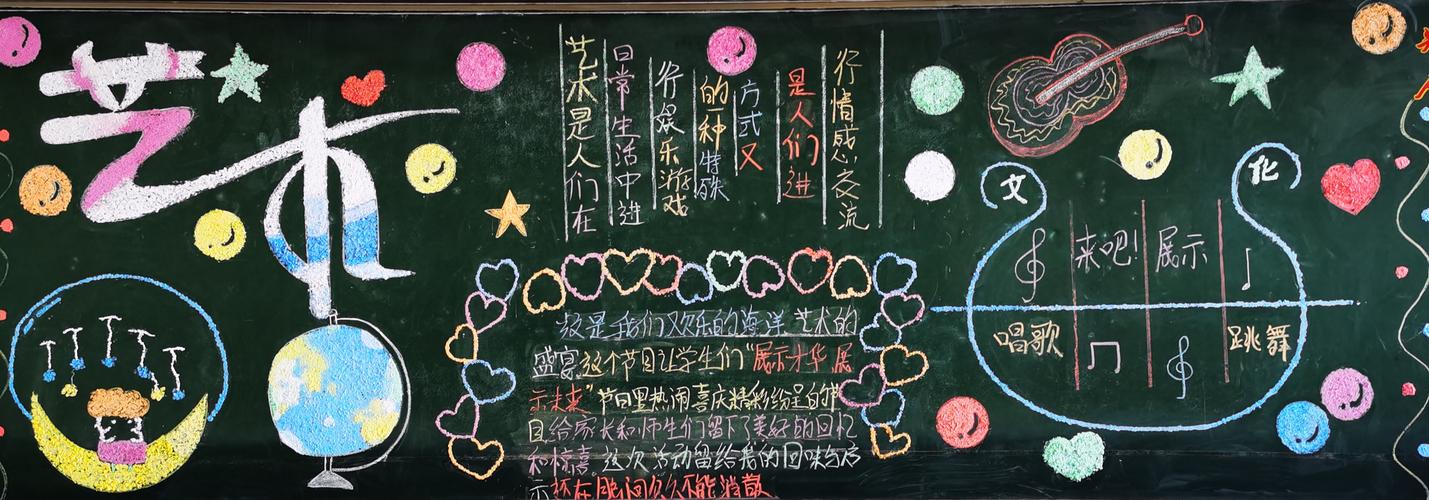 艺术
艺术是人们在
日常生活中进
行娱乐游戏
的一种特殊
方式又
是人们进
行情感交流
这是我们欢乐的海洋艺术的
盛宴这个节目让学生们"展示才华展
示未来"节日里热闹喜庆精彩纷呈的节
目给家长和师生们留下了美好的回忆
和惊喜这次活动留给我的回味与启
示还在眼间久久不能消散
文化
来吧!展示
唱歌
跳舞